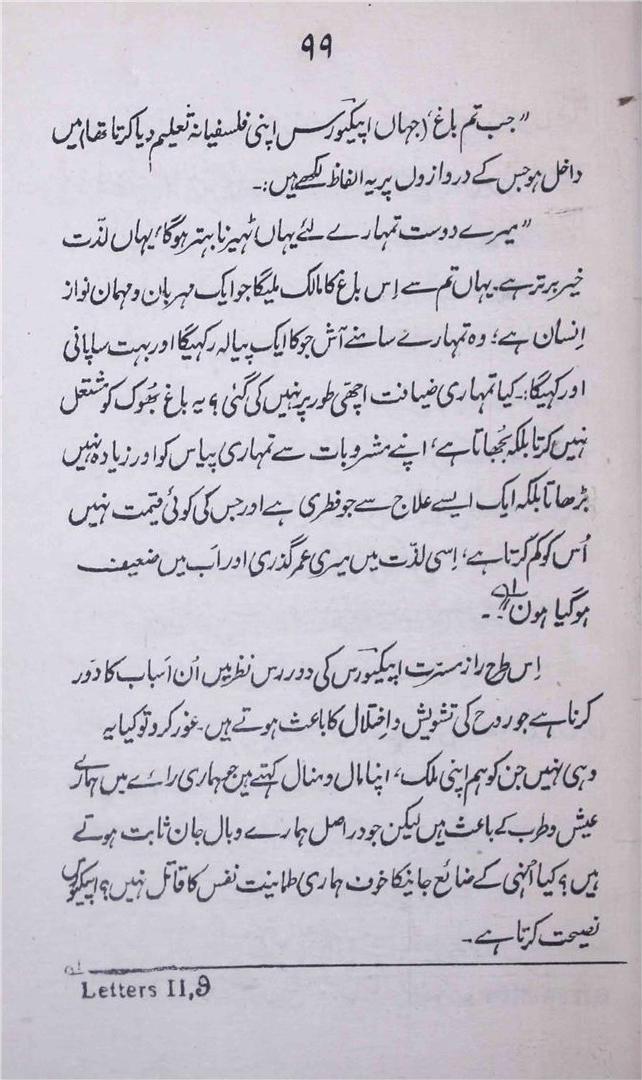 ۹۹
”جب تم باغ‘ (جہاں اپیکیورس اپنی فلسفیانہ تعلیم دیا کرتا تھا) میں
داخل ہو جس کے دروازوں پر یہ الفاظ لکھے ہیں:۔
”میرے دوست تمہارے لئے یہاں ٹہیرنا بہتر ہوگا‘ یہاں لذّت
خیر برتر ہے۔ یہاں تم سے اِس باغ کا مالک ملیگا جو ایک مہربان و مہمان نواز
اِنسان ہے؛ وہ تمہارے سامنے آش جو کا ایک پیالہ رکہیگا اور بہت سا پانی
اور کہیگا:۔ کیا تمہاری ضیافت اچھّی طور پر نہیں کی گئی؟ یہ باغ بھُوک کو مشتعل
نہیں کرتا بلکہ بُجھاتا ہے‘ اپنے مشروبات سے تمہاری پیاس کو اور زیادہ نہیں
بڑھاتا بلکہ ایک ایسے علاج سے جو فطری ہے اور جس کی کوئی قیمت نہیں
اُس کو کم کرتا ہے‘ اِسی لذّت میں میری عمر گذری اور اَب میں ضعیف
ہوگیا ہون“ لہ ۔
اِس طرح رازِ مسرّت اپیکیورس کی دور رس نظر میں اُن اَسباب کا دَور
کرنا ہے جو روح کی تشویش و اِختلال کا باعث ہوتے ہیں۔ غور کرو تو کیا یہ
وہی نہیں جن کو ہم اپنی ملک‘ اپنا مال و منال کہتے ہین جو ہماری رائے میں ہمارے
عیش و طرب کے باعث ہیں لیکن جو در اصل ہمارے وبال جان ثابت ہوتے
ہیں؟ کیا انہی کے ضائع جانیکا خوف ہماری طمانیت نفس کا قاتل نہیں؟ اپیکیورس
نصیحت کرتا ہے۔
لہ
Letters II,9